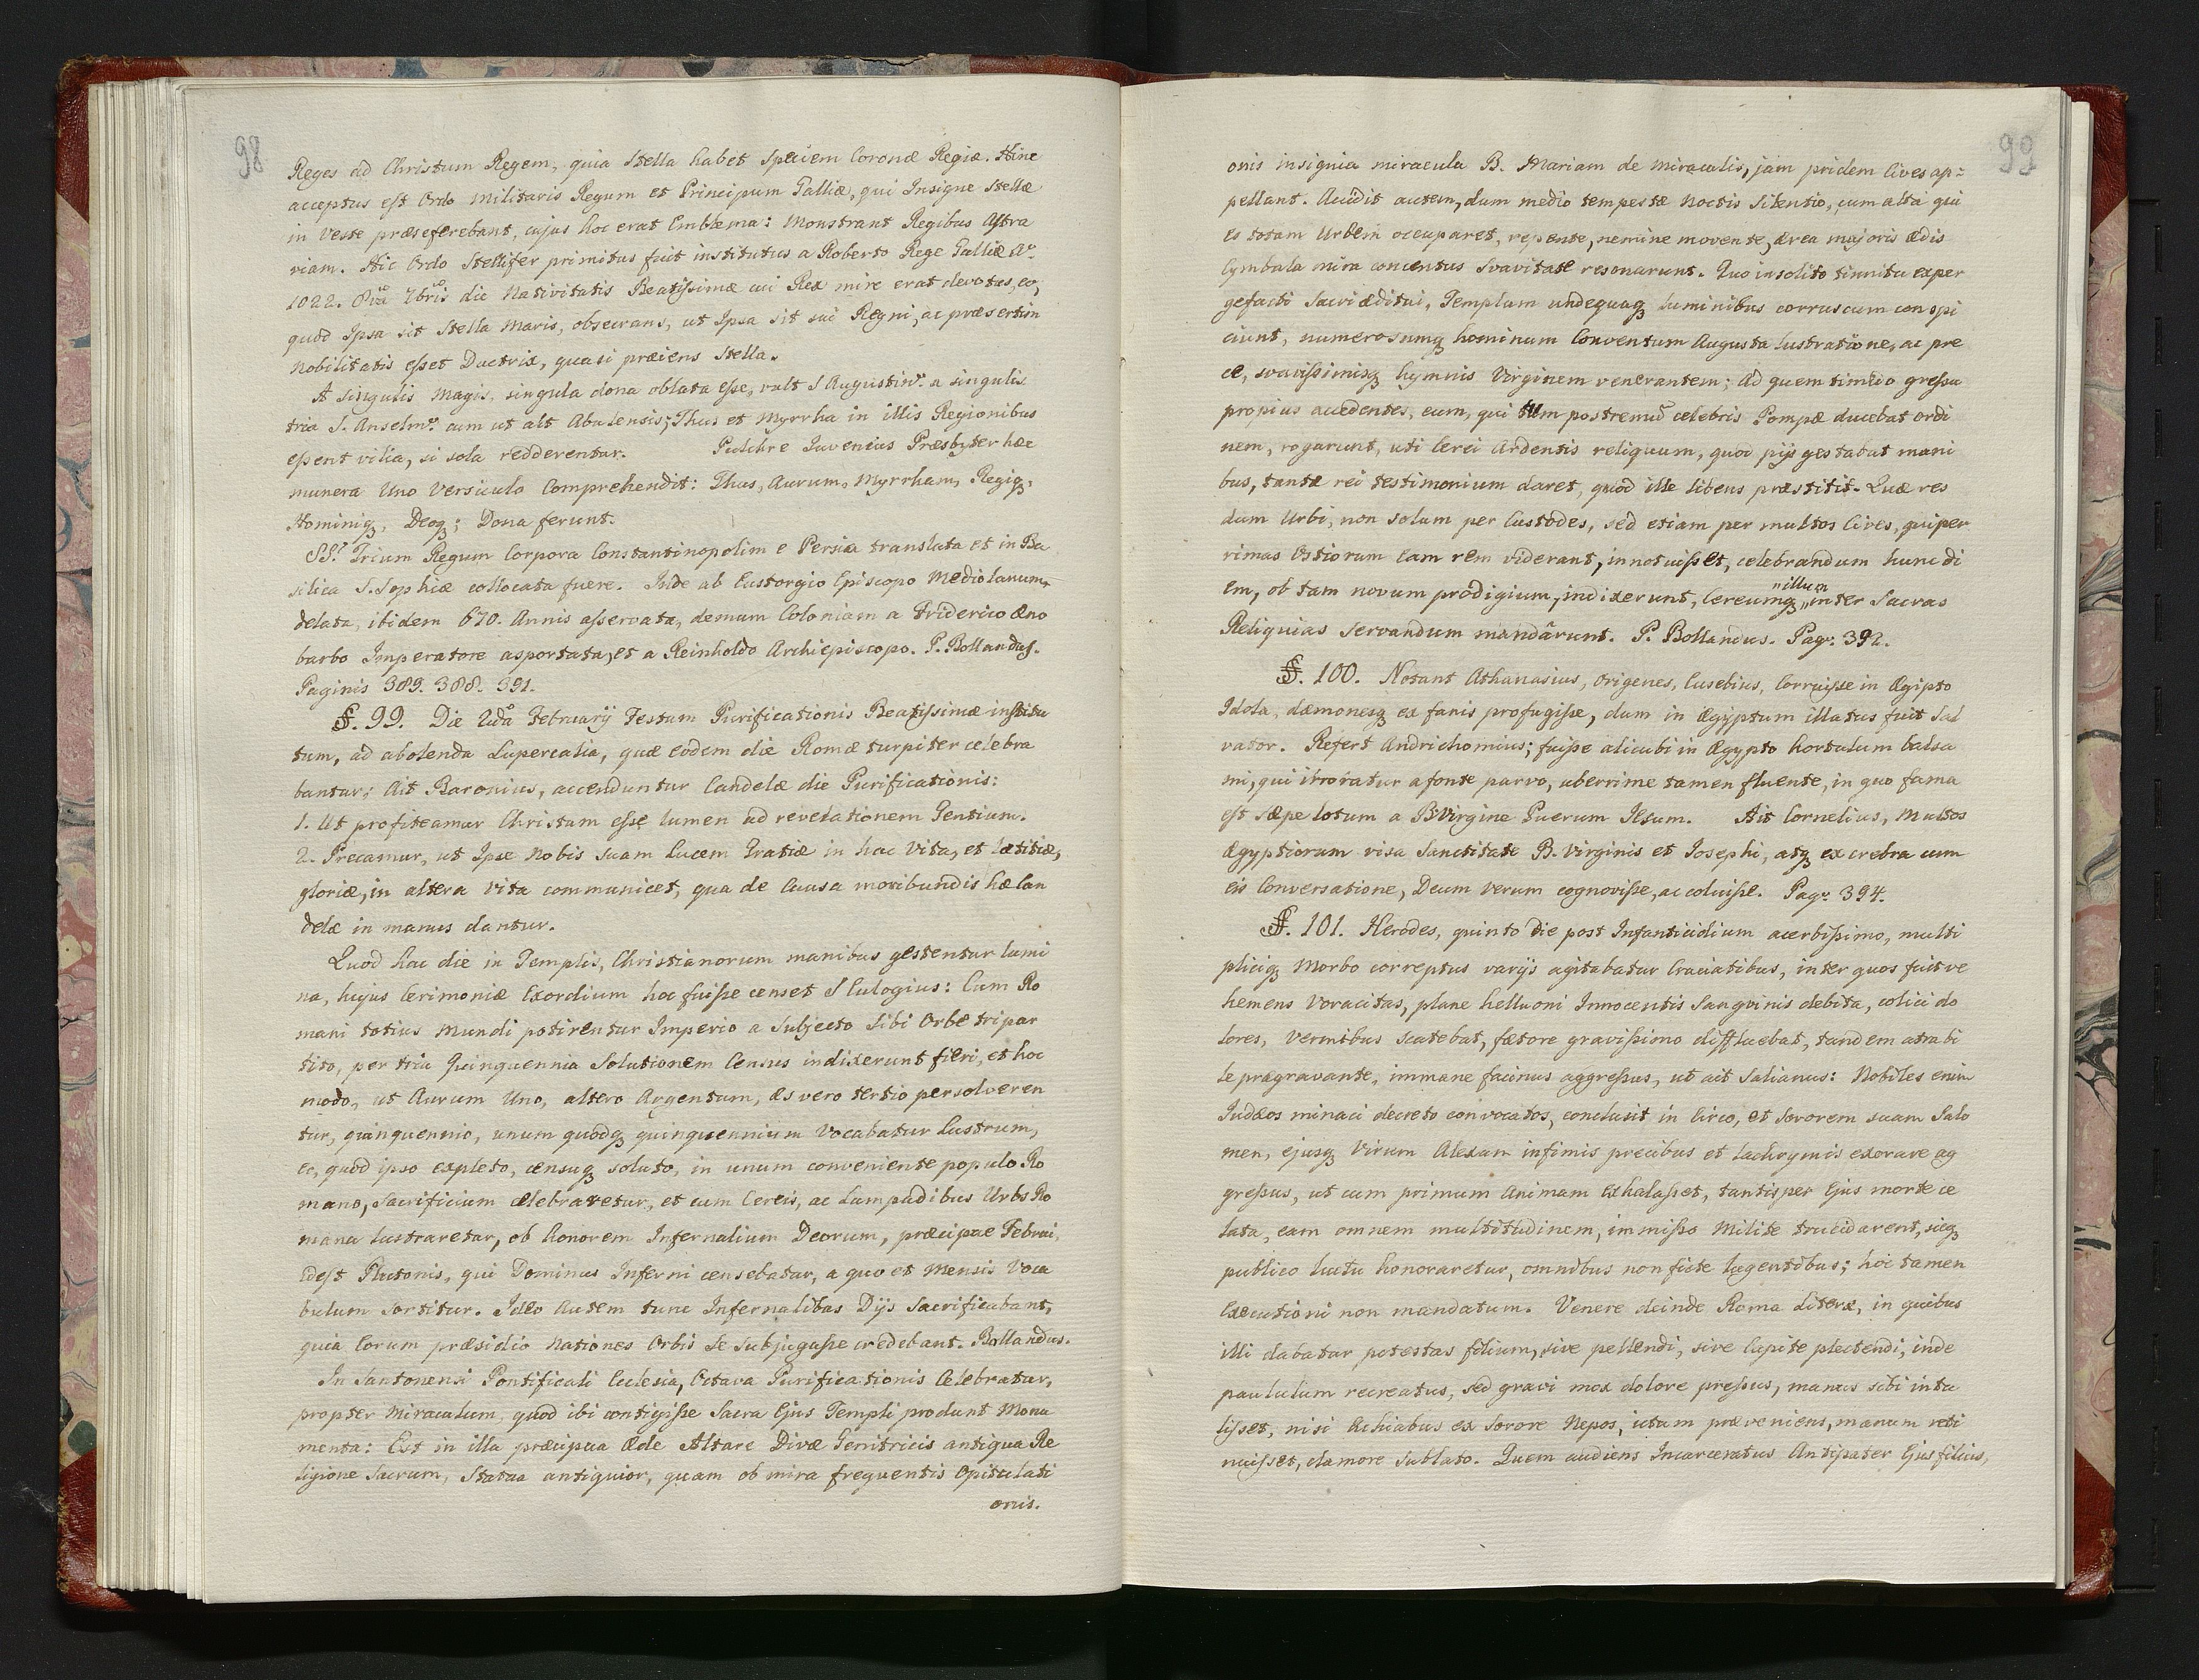 98
Reges ad Christum Regem, quia Stella habet Speciem Coronæ Regiæ. Hinc
acceptus est Ordo Militaris Regum et Principum Galliæ, qui Insigne Stellæ
in Veste præseferebant, cujus hoc erat Emblæma: Monstrant Regibus Astra
viam. Hic Ordo Stellifer primitus fuit institutus a Roberto Rege Galliæ Aº.
1022. 8va 7bris die Nativitatis Beatissimæ cui Rex mire erat devotus, eo,
quod Ipsa sit Stella Maris, obsecrans, ut Ipsa sit sui Regni, ac præsertim
Nobilitatis esset Ductrix, quasi præiens Stella.
A singulis Magis, singula dona oblata esse, vult S Augustinus. a singulis
tria S. Anselmus. cum ut alt Abulensis; Thus et Myrrha in illis Regionibus
essent vilia, si sola redderentur. Pulchre Iuvenius Præsbyter hæc
munera Uno Versiculo Comprehendit: Thus, Aurum, Myrrham, Regiq,
Hominiq, Deoq; Dona ferunt.
SS. Trium Regum Corpora Constantinopolim e Persia translata et in Ba
silica S. Sophiæ collocata fuere. Inde ab Eustorgio Episcopo Mediolanum
delata, ibidem 670. Annis asservata, demum Coloniam a Friderico Æno
barbo Imperatore asportata, et a Reinholdo Archiepiscopo. P. Bollandus.
Paginis 389. 388. 391.
§. 99. Die 2da Februarij Festum Purificationis Beatissimæ institu
tum, ad abolenda Lupercalia, quæ eodem die Romæ turpiter celebra
bantur; Ait Baronius, accenduntur Candelæ die Purificationis:
1. Ut profiteamur Christum esse lumen ad revelationem Gentium.
2. Precamur, ut Ipse Nobis suam Lucem Gratiæ in hac Vita, et lætitiæ,
gloriæ, in altera Vita communicet, qua de Causa moribundis hæ Can
delæ in manus dantur.
Quod hac die in Templis, Christianorum manibus gestentur lumi
na, hujus Cerimoniæ Exordium hoc fuisse censet S Eulogius: Cum Ro
mani totius Mundi potirentur Imperio a Subjecto Sibi Orbe tripar
tito, per tria Quinquennia Solutionem Census indixerunt fieri, et hoc
modo, ut Aurum Uno, altero Argentum, Æs vero tertio persolveren
tur, quinquennio, unum quodq quinquennium Vocabatur Lustrum,
eo, quod ipso expleto, censuq soluto, in unum conveniente populo Ro
mano, Sacrificium celebraretur, et cum Cereis, ac Lampadibus Urbs Ro
mana lustraretur, ob honorem Infernalium Deorum, præcipue Februi,
idest Plutonis, qui Dominus Inferni censebatur, a quo et Mensis Voca
bulum sortitur. Ideo Autem tunc Infernalibus Dijs Sacrificabant,
quia Eorum præsidio Nationes Orbis Se Subjugasse credebant. Bollandus.
In Santonensi Pontificali Ecclesia, Octava Purificationis Celebratur,
propter Miraculum, quod ibi contigisse Sacra Ejus Templi produnt Monu
menta: Est in illa præcipua Æde Altare Divæ Genitricis antiqua Re
ligione Sacrum, Statua antiquior, quam ob mira frequentis Opitulati
onis.
99
onis insignia miracula B. Mariam de Miraculis, jam pridem Cives ap:
pellant. Accidit autem, dum medio tempestæ Noctis Silentio, cum alta qui
es totam Urbem occuparet, repente, nemine movente, ærea majoris ædis
Cymbala mira concentus Svavitate resonarunt. Quo insolito tinnitu exper
gefacti Sacri æditui, Templum undequaq luminibus corruscum conspi
ciunt, numerosumq hominum Conventum Augusta lustratione, ac pre
ce, svavissimisq hymnis Virginem venerantem; Ad quem timido gressu
propius accedentes, eum, qui tum postremum celebris Pompæ ducebat ordi
nem, rogarunt, uti Cerei Ardentis reliquum, quod pijs gestabat mani
bus, tantæ rei testimonium daret, quod ille libens præstitit. Quæ res
dum Urbi, non solum per Custodes, sed etiam per multos Cives, qui per
rimas Ostiorum eam rem viderant, innotuisset, celebrandum hunc di
em, ob tam novum prodigium, indixerunt, Cereumq illum inter Sacras
Reliquias servandum mandârunt. P. Bollandus. Pag: 392.
§. 100. Notant Athanasius, Origenes, Eusebius, Corruisse in Ægipto
Idola, dæmonesq ex fanis profugisse, dum in Ægyptum illatus fuit Sal
vator. Refert Andrichomius; fuisse alicubi in Ægypto hortulum balsa
mi, qui irroratur a fonte parvo, uberrime tamen fluente, in quo fama
est sæpe lotum a BVirgine Puerum Jesum. Ait Cornelius, Multos
Ægyptiorum visa Sanctitate B. Virginis et Iosephi, atq ex crebra cum
eis Conversatione, Deum Verum cognovisse, ac coluisse. Pag: 394.
§. 101. Herodes, quinto die post Infanticidium acerbissimo, multi
pliciq Morbo correptus varijs agitabatur Cruciatibus, inter quos fuit ve
hemens Voracitas, plane helluoni Innocentis Sangvinis debita, colici do
lores, Vermibus scatebat, fætore gravissimo diffluebat, tandem atra bi
le prægravante, immane facinus aggressus, ut ait Salianus: Nobiles enim
Iudæos minaci decreto convocatos, conclusit in Circo, et Sororem suam Salo
men, ejusq Virum Alexam infimis precibus et lachrymis exorare ag
gressus, ut cum primum Animam Exhalasset, tantisper Ejus morte ce
lata, eam omnem multitudinem, immisso Milite trucidarent, sicq
publico luctu honoraretur, omnibus non ficte lugentibus; hoc tamen
Executioni non mandatum. Venere deinde Roma Literæ, in quibus
illi dabatur potestas filium, sive pellendi, sive Capite plectendi, inde
paululum recreatus, sed gravi mox dolore pressus, manus sibi intu
lisset, nisi Achiabus ex Sorore Nepos, ictum præveniens, manum reti
nuisset, clamore sublato. Quem audiens Incarceratus Antipater Ejus filius,